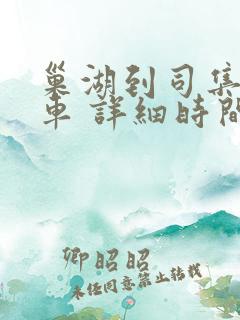 巢湖到司集
车 詳細時間
卿昭昭
未经同意禁止转载